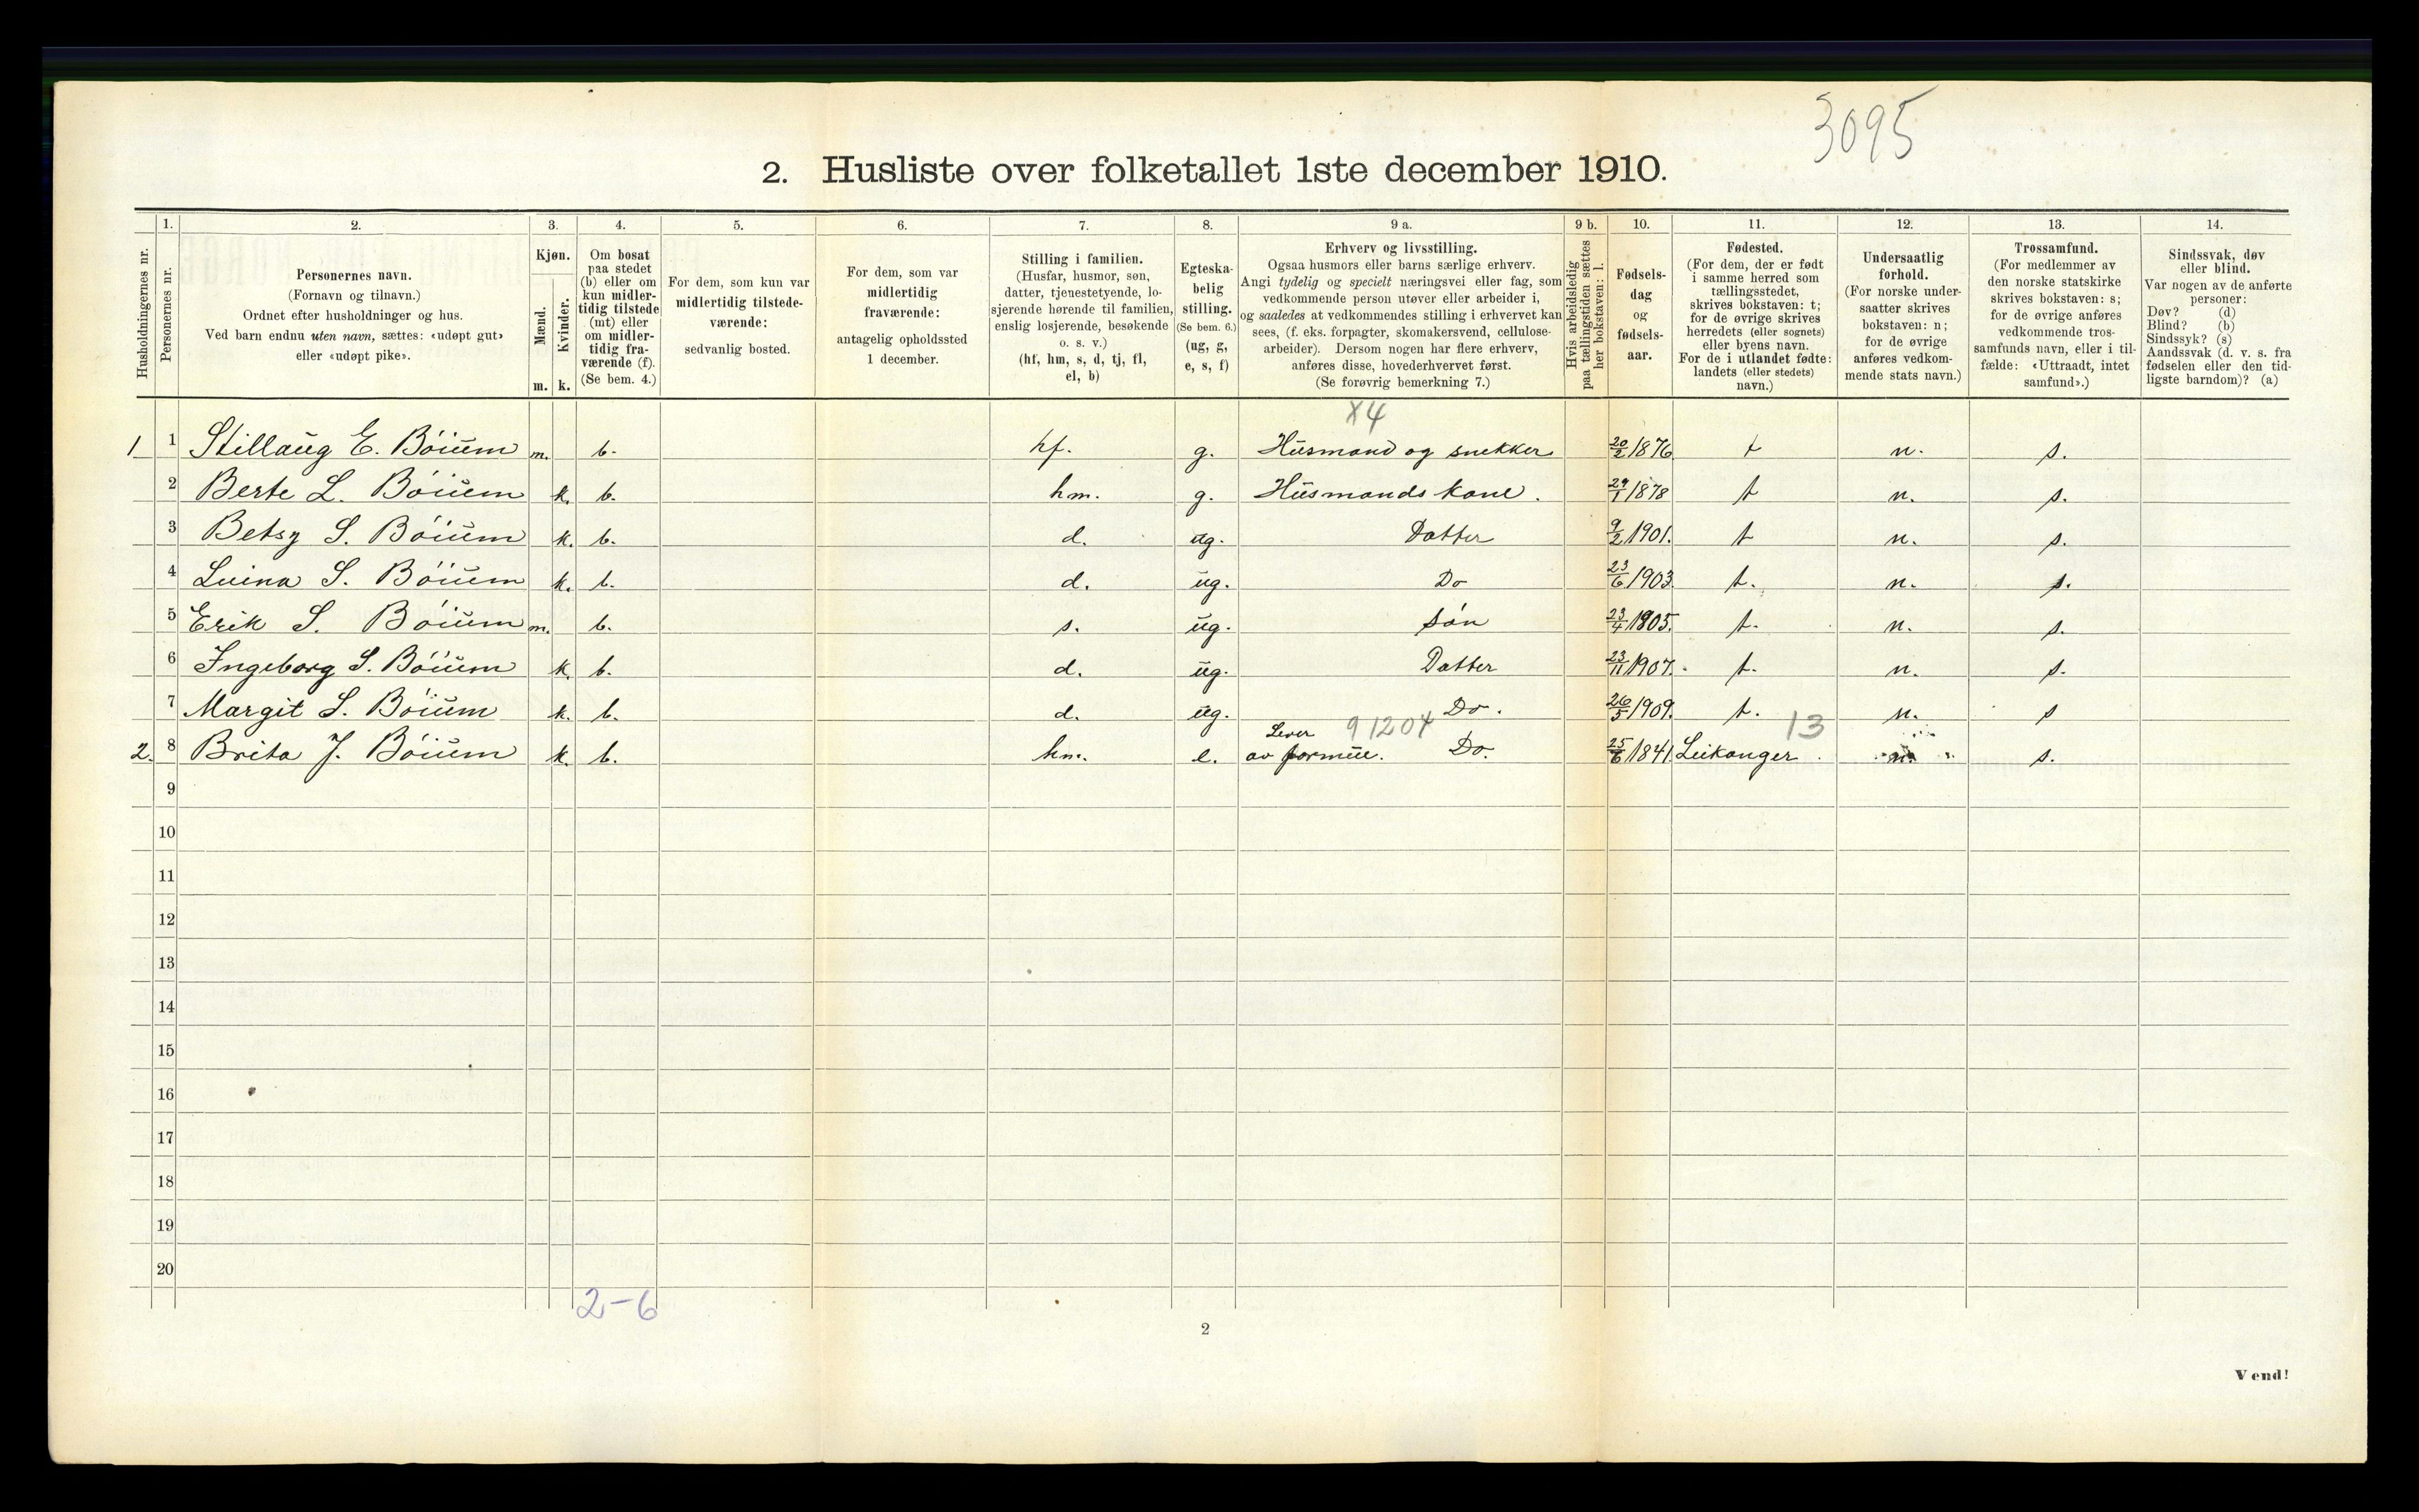 3095
2. Husliste over folketallet 1ste december 1910.
Husholdningernes nr.
1. Personernes nr.
2. Personernes navn. (Fornavn og tilnavn.) Ordnet efter husholdninger og hus. Ved barn endnu uten navn, sættes: «udøpt gut» eller «udøpt pike».
3. Kjøn. Mænd. m. Kvinder. k.
4. Om bosat paa stedet (b) eller om kun midlertidig tilstede (mt) eller om midlertidig fraværende (f). (Se bem. 4.)
5. For dem, som kun var midlertidig tilstedeværende: sedvanlig bosted.
6. For dem, som var midlertidig fraværende: antagelig opholdssted 1 december.
7. Stilling i familien. (Husfar, husmor, søn, datter, tjenestetyende, losjerende hørende til familien, enslig losjerende, besøkende o. s. v.) (hf, hm, s, d, tj, fl, el, b)
8. Egteskabelig stilling. (Se bem. 6.) (ug, g, e, s, f)
9 a. Erhverv og livsstilling. Ogsaa husmors eller barns særlige erhverv. Angi tydelig og specielt næringsvei eller fag, som vedkommende person utøver eller arbeider i, og saaledes at vedkommendes stilling i erhvervet kan sees, (f. eks. forpagter, skomakersvend, cellulosearbeider). Dersom nogen har flere erhverv, anføres disse, hovederhvervet først. (Se forøvrig bemerkning 7.)
9 b. Hvis arbeidsledig paa tællingstiden sættes her bokstaven: l.
10. Fødselsdag og fødselsaar.
11. Fødested. (For dem, der er født i samme herred som tællingsstedet, skrives bokstaven: t; for de øvrige skrives herredets (eller sognets) eller byens navn. For de i utlandet fødte: landets (eller stedets) navn.)
12. Undersaatlig forhold. (For norske undersaatter skrives bokstaven: n; for de øvrige anføres vedkommende stats navn.)
13. Trossamfund. (For medlemmer av den norske statskirke skrives bokstaven: s; for de øvrige anføres vedkommende trossamfunds navn, eller i tilfælde: «Uttraadt, intet samfund».)
14. Sindssvak, døv eller blind. Var nogen av de anførte personer: Døv? (d) Blind? (b) Sindssyk? (s) Aandssvak (d. v. s. fra fødselen eller den tidligste barndom)? (a)
X4
1 1 Stillaug E. Bóium m. b. hf. g. Husmand og snekker 20/2 1876 t n. s.
2 Berte L. Bóium k. b. hm. g. Husmands kone. 29/1 1878 t n. s.
3 Betsy S. Bóium k. b. d. ug. Datter 9/2 1901. t n. s.
4 Luina S. Bóium k. b. d. ug. Do 23/6 1903. t. n. s.
5 Erik S. Bóium m. b. s. ug. Són 23/4 1905. t. n. s.
6 Ingeborg S. Bóium k. b. d. ug. Datter 23/11 1907. t. n. s.
7 Margit S. Bóium k. b. d. ug. Do. 26/5 1909. t. n. s
91204 13
2. 8 Brita J. Bóium k. b. hm. e. Lever av formue. Do. 25/6 1841. Leikanger n. s.
9
10
11
12
13
14
15
16
17
18
19
20
2-6
2
Vend!